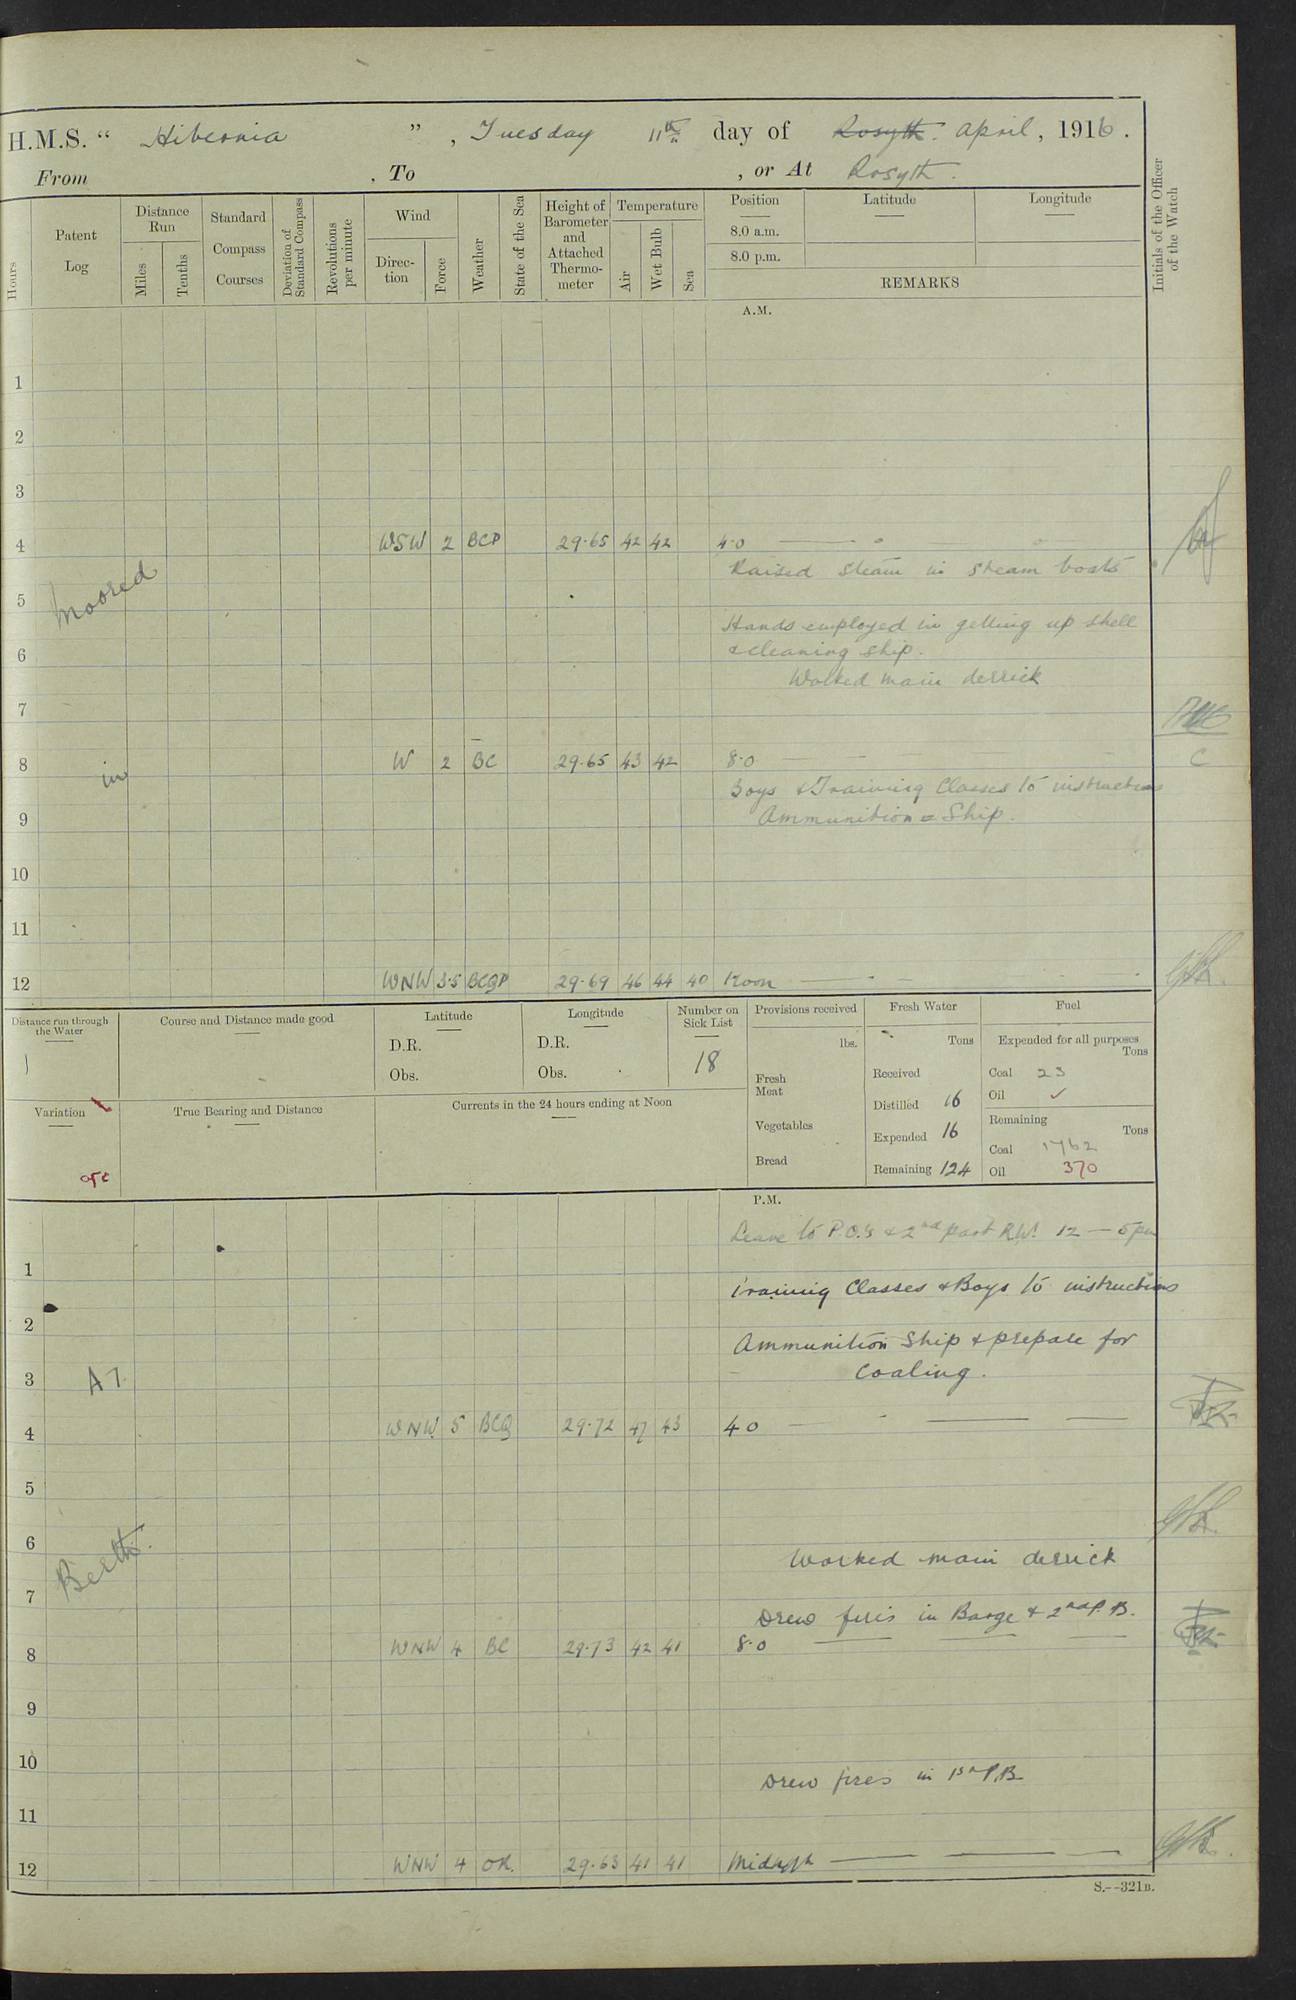 H.M.S. “ Hibernia ” , Tuesday 11th day of Rosyth. April , 1916 .
From , To , or At Rosyth .
Hours
Patent Log
Distance Run
Miles
Tenths
Standard Compass Courses
Deviation of Standard Compass
Revolutions per minute
Wind
Direc-tion
Force
Weather
State of the Sea
Height of Barometer and Attached Thermo-meter
Temperature
Air
Wet Bulb
Sea
Position
8.0 a.m.
8.0 p.m.
Latitude
Longitude
REMARKS
Initials of the Officer of the Watch
A.M.
1
2
3
4 WSW 2 BCP 29.65 42 42 4.0
Raised steam in steam boats
Moored
5
Hands employed in getting up shell
6 & cleaning ship.
Worked main derrick
7
8 W 2 BC 29.65 43 42 8.0 C
in
Boys & Training Classes to instructions
9 Ammunition = Ship.
10
11
12 WNW 3.5 BCQP 29.69 46 44 40 Noon
Distance run through the Water
Course and Distance made good
Latitude
D.R.
Obs.
Longitude
D.R.
Obs.
Number on Sick List
18
Provisions received
lbs.
Fresh Meat
Vegetables
Bread
Fresh Water
Tons
Received
Distilled 16
Expended 16
Remaining 124
Fuel
Expended for all purposes
Tons
Coal 23
Oil ✓
Remaining
Tons
Coal 1762
Oil 370
Variation
True Bearing and Distance
Currents in the 24 hours ending at Noon
P.M.
Leave to P.O.s & 2nd part R.W. 12 — 5 pm
1
Training Classes & Boys to instructions
2
Ammunition Ship & prepare for
3 Coaling.
A7
4 WNW 5 BCQ 29.72 47 43 4.0
5
6
Berth.
Worked main derrick
7
Drew fires in Barge & 2nd P.B.
8 WNW 4 BC 29.73 42 41 8.0
9
10
Drew fires in 1st P.B.
11
12 WNW 4 OR. 29.63 41 41 Midnght
S.--321B.